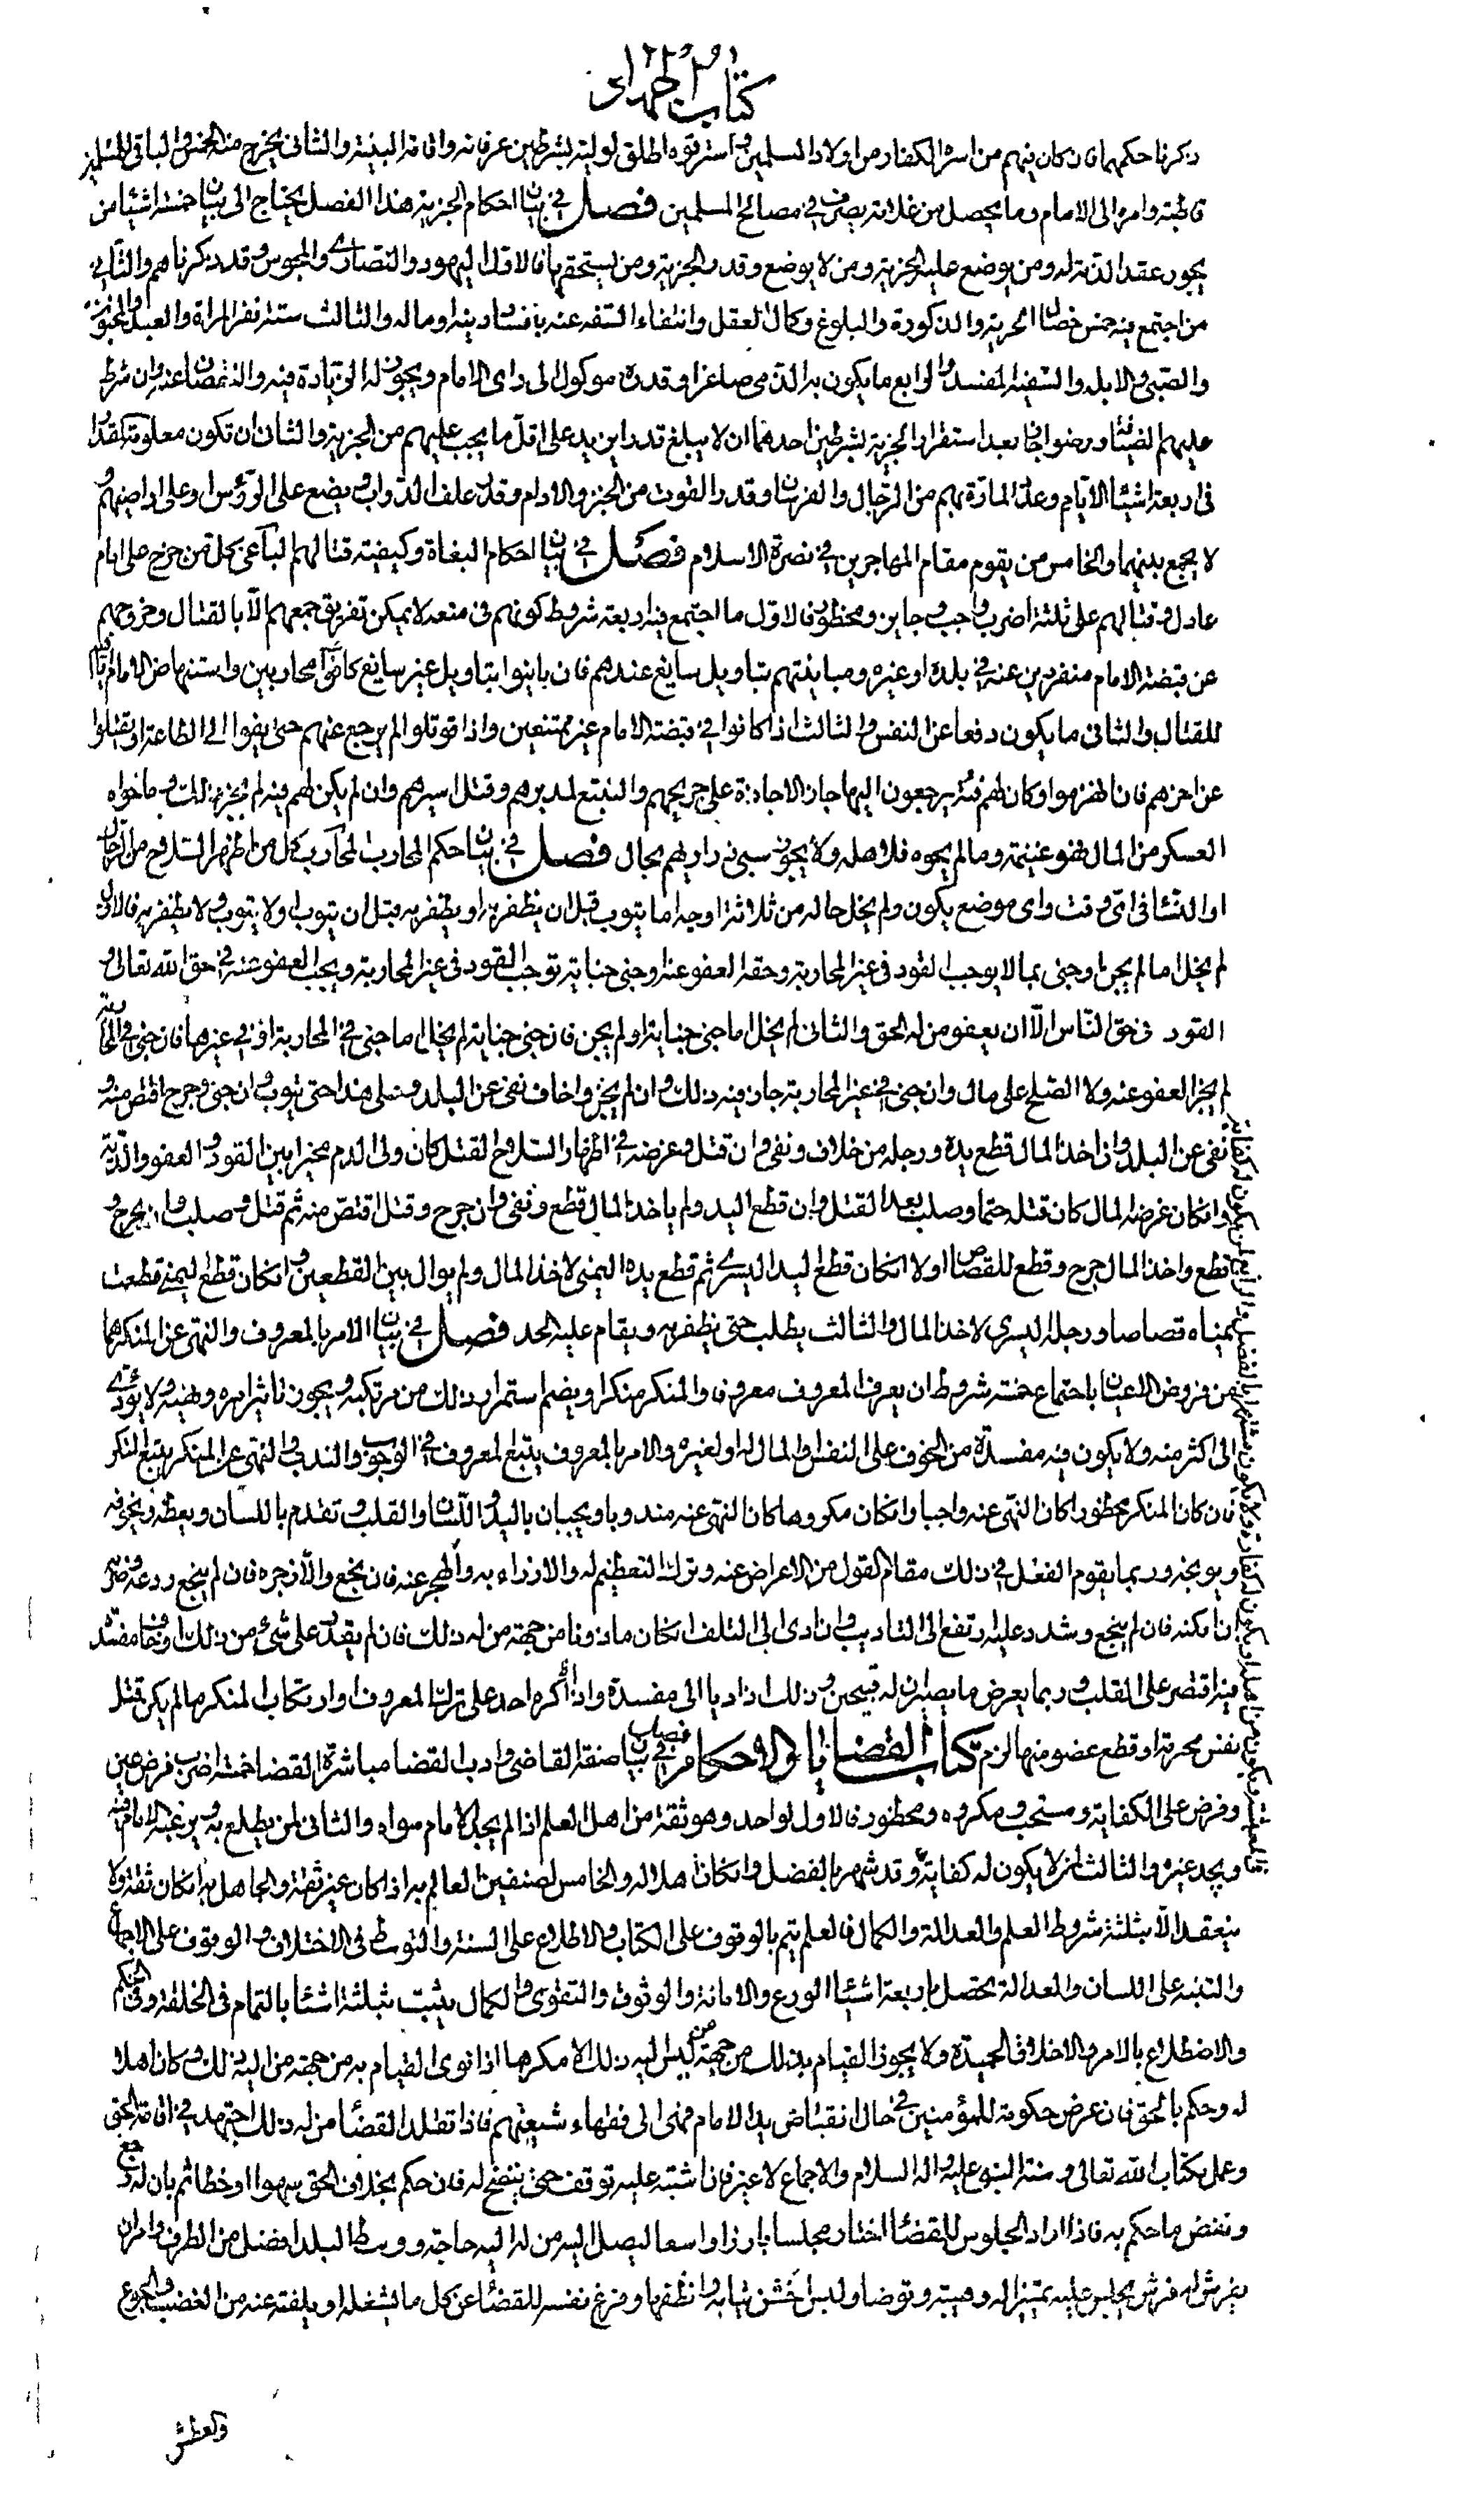 كتاب الجهاد
ذكرنا حكمهما فان كان فيهم من اسره الكفار من اولاد المسلمين واسترقوه اطلق لوليه بشرطين عرفانه واقامة البينة والثاني يخرج منه الخمس والباقي للمسلمين
قاطبة وامره الى الامام وما يحصل من غلاته يصرف في مصالح المسلمين فصل في بيان احكام الجزية هذا الفصل يحتاج الى بيان خمسة اشيا من
يجوز عقد الذمة له ومن يوضع عليه الجزية ومن لا يوضع وقدر الجزية ومن يستحقها فالاول اليهود والنصارى والمجوس وقد ذكرناهم والثاني
من اجتمع فيه خمس خصال الحرية والذكورة والبلوغ وكمال العقل وانتفاء السفه عنه بافساد دينه او ماله والثالث ستة نفر المراة والعبد والمجنون
والصبي والابله والسفيه المفسد والرابع ما يكون به الذمي صاغرا وقدره موكول الى راى الامام ويجوز له الزيادة فيه والنقصان عنه وان شرط
عليهم الضيافة ورضوا بها بعد استقرار الجزية بشرطين احدهما ان لا يبلغ قدرا يزيد على اقل ما يجب عليهم من الجزية والثان ان تكون معلومة المقدار
في اربعة اشيا الايام وعدد المارة بهم من الرجال والفرسان وقدر القوت من الخبز والادام وقدر علف الدواب ويضع على الرؤس او على اراضيهم و
لا يجمع بينهما والخامس من يقوم مقام المهاجرين في نصرة الاسلام فصل في بيان احكام البغاة وكيفية قتالهم الباغي كل من خرج على امام
عادل وقتالهم على ثلثة اضرب واجب وجايز ومحظور فالاول ما اجتمع فيه اربعة شروط كونهم في منعة لا يمكن تفريق جمعهم الا بالقتال وخروجهم
عن قبضة الامام منفردين عنه في بلده او غيره ومباينتهم بتاويل سايغ عندهم فان باينوا بتاويل غير سايغ كانوا محاربين واستنهاض الامام اياه
للقتال والثاني ما يكون دفعا عن النفس والثالث اذا كانوا في قبضة الامام غير ممتنعين واذا قوتلوا لم يرجع عنهم حتى يفوا الى الطاعة او يقتلوا
عن اخرهم فان انهزموا وكان لهم فئة يرجعون اليها جاز الاجازة على جريحهم والتتبع لمدبرهم وقتل اسيرهم وان لم يكن لهم فيه لم يجز ذلك وما حواه
العسكر من المال فهو غنيمة وما لم يحوه فلاهله ولا يجوز سبي ذراريهم بحال فصل في بيان حكم المحارب المحارب كل من اظهر السلاح من الرجال
او النسا في اي وقت واي موضع يكون ولم يخل حاله من ثلاثة اوجه اما يتوب قبل ان يظفر به او يظفر به قبل ان يتوب او لا يتوب ولا يظفر به فالاول
لم يخل اما لم يجن او جنى بما لا يوجب القود في غير المحاربة وحقه العفو عنه او جنى جناية توجب القود في غير المحاربة ويجب العفو عنه في حق الله تعالى و
القود في حق الناس الا ان يعفو من له الحق والثاني لم يخل اما جنى جناية او لم يجن فان جنى جناية لم يخل اما جنى في المحاربة او في غيرها فان جنى في المحاربة
لم يجز العفو عنه ولا الصلح على مال وان جنى في غير المحاربة جاز فيه ذلك وان لم يجن واخاف نفي عن البلد وعلى هذا حتى يتوب وان جنى وجرح اقتص منه و
نفي عن البلد وان اخذ المال قطع يده ورجله من خلاف ونفي وان قتل وغرضه في اظهار السلاح القتل كان ولي الدم مخيرا بين القود والعفو والدية
وان كان غرضه المال كان قتله حتما وصلب بعد القتل وان قطع اليد ولم ياخذ المال قطع ونفي وان جرح وقتل اقتص منه ثم قتل وصلب وان جرح و
قطع واخذ المال جرح وقطع للقصاص اولا ان كان قطع اليد اليسرى ثم قطع يده اليمنى لاخذ المال ولم يوال بين القطعين وان كان قطع اليمنى قطعت
يمناه قصاصا ورجله اليسرى لاخذ المال والثالث يطلب حتى يظفر به ويقام عليه الحد فصل في بيان الامر بالمعروف والنهي عن المنكر هما
من فروض الاعيان باجتماع خمسة شروط ان يعرف المعروف معروفا والمنكر منكرا ويضم استمرار ذلك من مرتكبه ويجوز تاثير امره ونهيه ولا يؤدي
الى اكثر منه ولا يكون فيه مفسدة من الخوف على النفس والمال له او لغيره والامر بالمعروف يتبع المعروف في الوجوب والندب والنهي عن المنكر يتبع المنكر
فان كان المنكر محظورا كان النهي عنه واجبا وان كان مكروها كان النهي عنه مندوبا ويجبان باليد واللسان والقلب وتقدم باللسان ويعظه ويخوفه
ويوبخه وربما يقوم الفعل في ذلك مقام القول من الاعراض عنه وترك التعظيم له والازراء به والهجر عنه فان نجع والا زجره فان لم ينجع ردعه وضربه
ان امكنه فان لم ينجع وشدد عليه رتفع الى التاديب وان ادى الى التلف ان كان ماذونا من جهة من له ذلك فان لم يقدر على شيء من ذلك او خاف مفسدة
فيه اقتصر على القلب وربما يعرض ما يصيران له قبيحين وذلك اذا ديا الى مفسدة واذا اكره احد على ترك المعروف او ارتكاب المنكر ما لم يكن قتل
نفس محرمة او قطع عضو منها لزم كتاب القضايا والاحكام فصل في بيان صفة القاضي وادب القضا مباشرة القضا خمسة اضرب فرض عين
وفرض على الكفاية ومستحب ومكروه ومحظور فالاول لواحد وهو ثقة من اهل العلم اذا لم يجد الامام سواه والثاني لمن يطلع به ويرغبه الامام فيه
ويجد غيره والثالث لمن لا يكون له كفاية وقد شهر بالفضل وان كان اهلا له والخامس لصنفين العالم به اذا كان غير ثقة والجاهل به ان كان ثقة ولا
ينعقد الا بثلثة شروط العلم والعدالة والكمال فالعلم يتم بالوقوف على الكتاب والاطلاع على السنة والتوسط في الاختلاف والوقوف على الاجماع
والتنبه على اللسان والعدالة تحصل باربعة اشيا الورع والامانة والوثوق والتقوى والكمال يثبت بثلثة اشيا بالتمام في الخلقة وفي الحكم
والاضطلاع بالامر والاخلاق الحميدة ولا يجوز القيام بذلك من جهة من ليس اليه ذلك الا مكرها اذا نوى القيام به من جهة من اليه ذلك وكان اهلا
له وحكم بالحق فان عرض حكومة للمؤمنين في حال انقباض يد الامام فهي الى فقهاء شيعتهم فاذا تقلد القضا من له ذلك اجتهد في اقامة الحق
وعمل بكتاب الله تعالى وسنة النبي عليه واله السلام والاجماع لا غير فان اشتبه عليه توقف حتى يتضح له فان حكم بخلاف الحق سهوا او خطا ثم بان له رجع
ونقض ما حكم به فاذا اراد الجلوس للقضا اختار مجلسا بارزا واسعا ليصل اليه من له اليه حاجة ووسط البلد افضل من الطرف وامر ان
يفرش له فرش يجلس عليه تمييزا له وهيبة وتوضا ولبس اخشن ثيابه وانظفها وفرغ نفسه للقضا عن كل ما يشغله او يلفته عنه من الغضب والجوع
والعطش